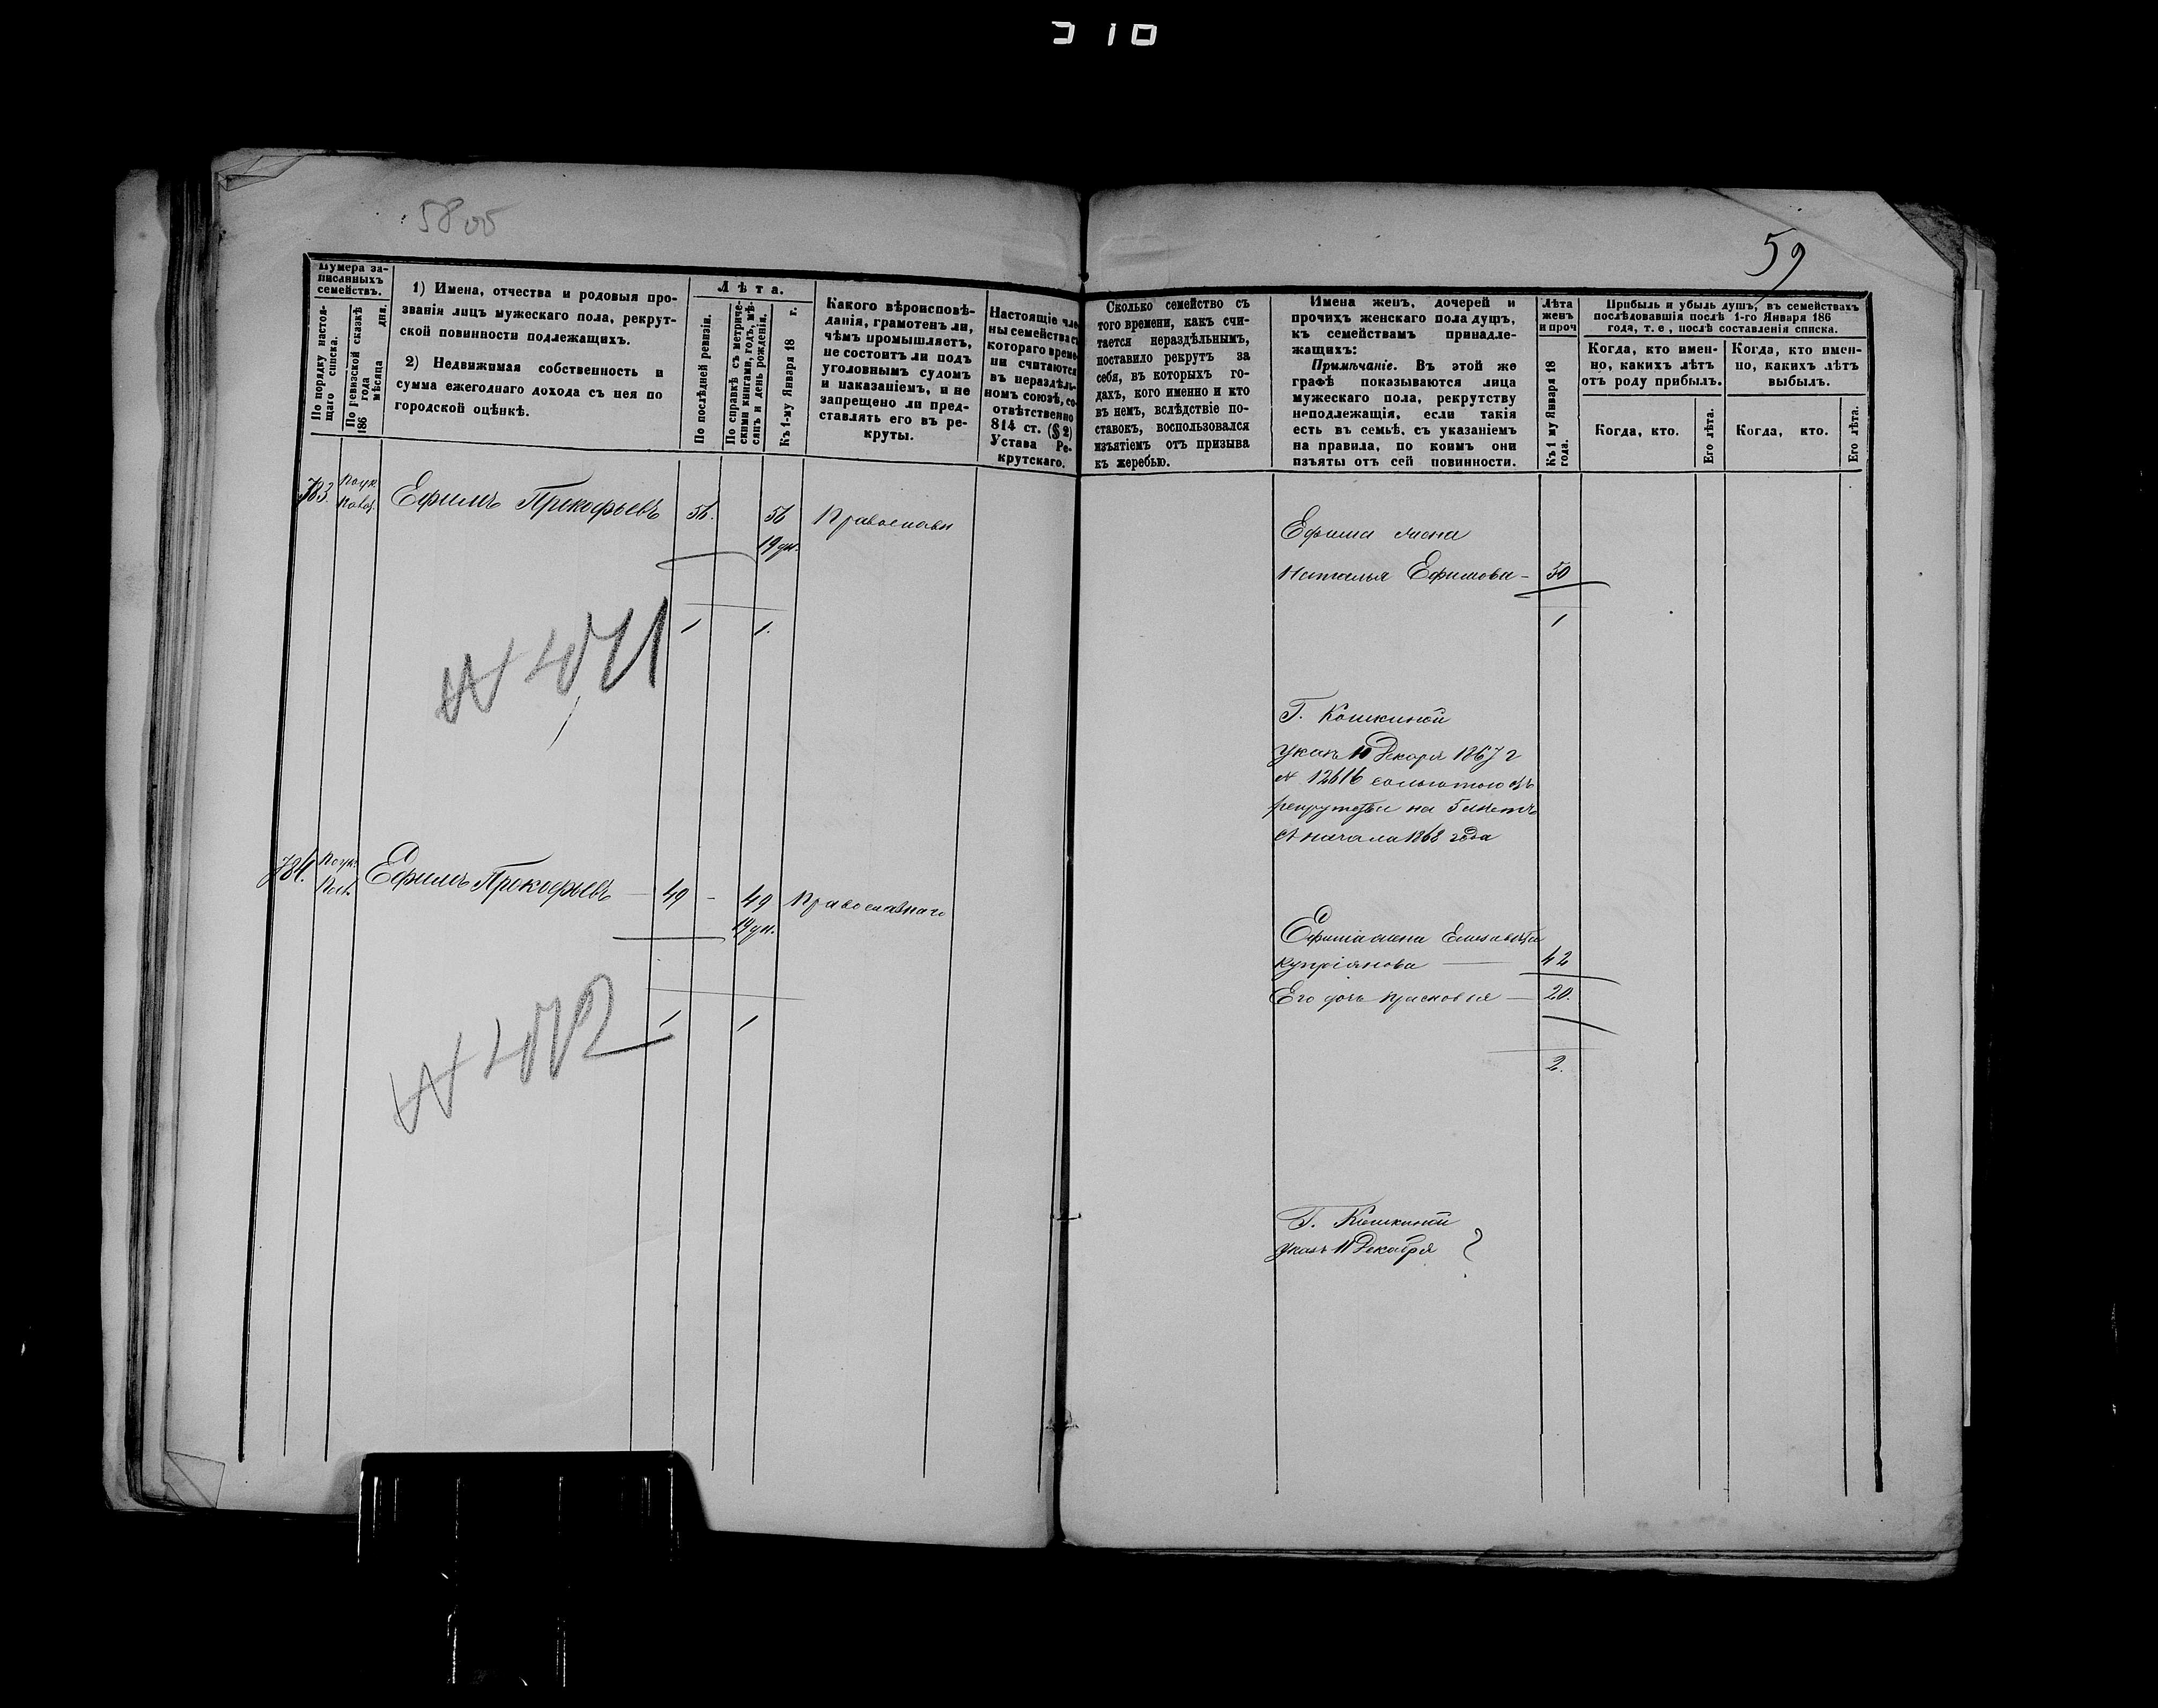 310
5800
59
Нумера за-
писанныхъ
семействъ.
По порядку настоя-
щаго списка.
По ревизской сказкѣ
186 года
мѣсяца дня.
1) Имена, отчества и родовыя про-
званія лицъ мужескаго пола, рекрут-
ской повинности подлежащихъ.
2) Недвижимая собственность и
сумма ежегоднаго дохода съ нея по
городской оцѣнкѣ.
Лѣта.
По послѣдней ревизіи.
По справкѣ съ метриче-
скими книгами, годъ, мѣ-
сяцъ и день рожденія.
Къ 1-му Января 18 г.
Какого вѣроисповѣ-
данія, грамотенъ ли,
чѣмъ промышляетъ,
не состоитъ ли подъ
уголовнымъ судомъ
и наказаніемъ, и не
запрещено ли пред-
ставлять его въ ре-
круты.
Настоящіе чле-
ны семейства съ
котораго време-
ни считаются
въ нераздѣль-
номъ союзѣ, со-
отвѣтственно
814 ст. (§ 2)
Устава Ре-
крутскаго.
Сколько семейство съ
того времени, какъ счи-
тается нераздѣльнымъ,
поставило рекрутъ за
себя, въ которыхъ го-
дахъ, кого именно и кто
въ немъ, вслѣдствіе по-
ставокъ, воспользовался
изъятіемъ отъ призыва
къ жеребью.
Имена женъ, дочерей и
прочихъ женскаго пола душъ,
къ семействамъ принадле-
жащихъ:
Примѣчаніе. Въ этой же
графѣ показываются лица
мужескаго пола, рекрутству
неподлежащія, если такія
есть въ семьѣ, съ указаніемъ
на правила, по коимъ они
изъяты отъ сей повинности.
Лѣта
женъ
и проч
Къ 1 му Января 18
года.
Прибыль и убыль душъ, въ семействахъ
послѣдовавшія послѣ 1-го Января 186
года, т. е, послѣ составленія списка.
Когда, кто имен-
но, какихъ лѣтъ
отъ роду прибылъ.
Когда, кто имен-
но, какихъ лѣтъ
выбылъ.
Когда, кто.
Его лѣта.
Когда, кто.
Его лѣта.
783. Ефимъ Прокофьевъ 56. 56 Православн
19 дн.
1 1.
№ 4071
Ефима жена
Наталья Ефимова – 50
1
Г. Кошкиной
Указъ 10 Декаря 1867 г
№ 12616 сольготою отъ
на 5 лѣтъ
съ начала 1868 года
784. Ефимъ Прокофьевъ – 49 – 49 Православнаго
19 дн.
1 1
№ 4072
Ефима жена Елизавѣта
Купріянова — 42
Его дочь Прасковья — 20.
2.
Г. Кошкиной
Указъ 11 Декабря